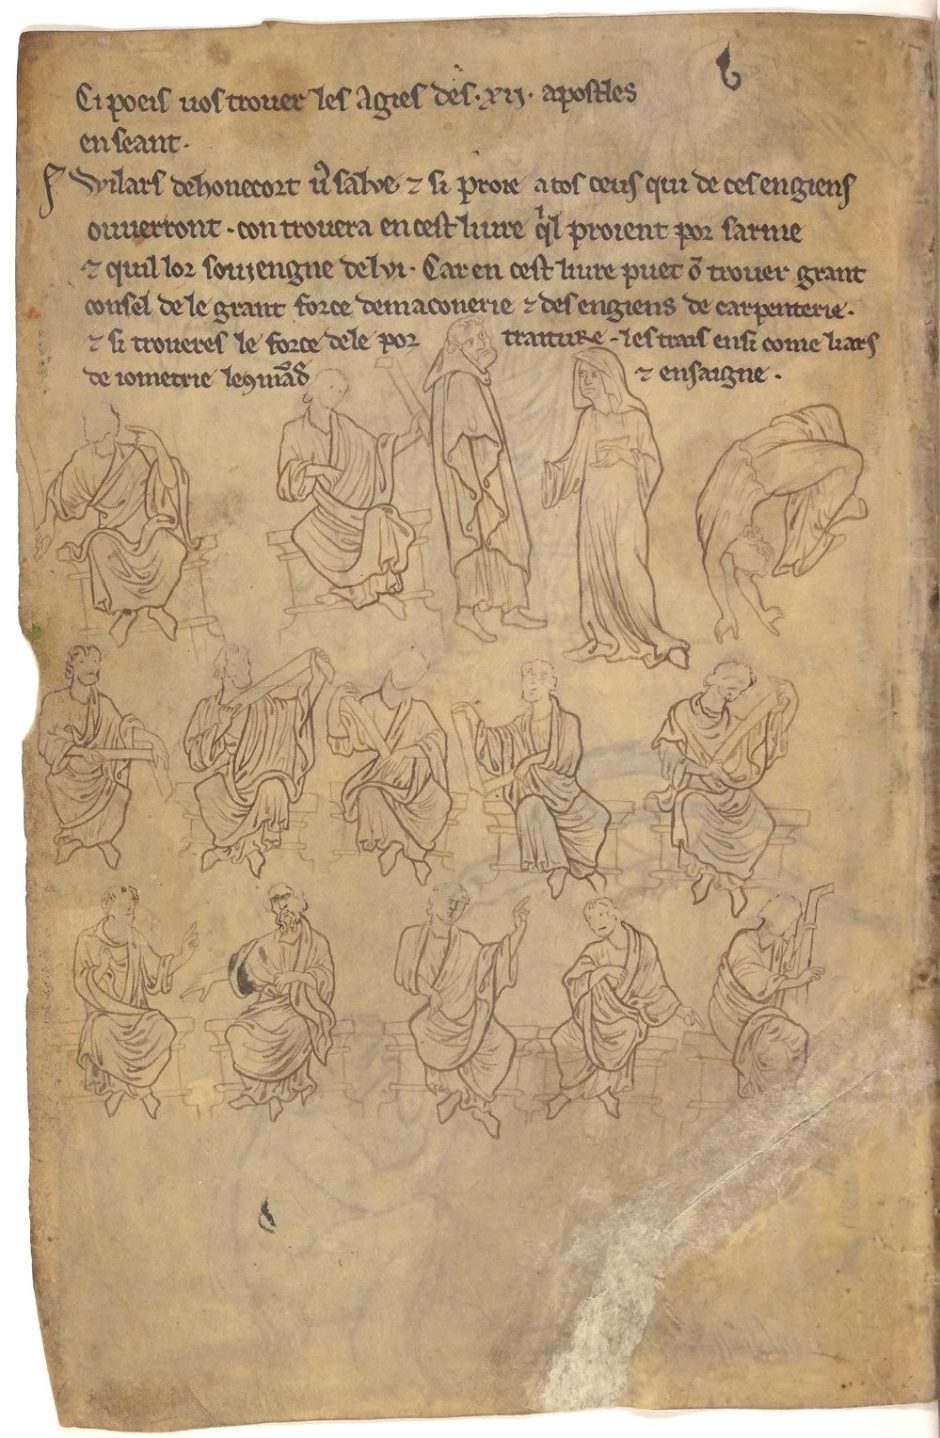 Ci poeis uos trouer les Agies des .xij. apostles
en seant.
Wilars dehonecort u᷑ salve ⁊ si proie a tos ceus qui de ces engiens
ouuerront . con trouera en cest liure q̍l proient por sarme
⁊ quil lor souiengne delui . Car en cest liure puet ō trouer grant
consel de le grant force demaconerie ⁊ des engiens de carpenterie .
⁊ si troueres le force dele por traiture . les trais ensi come liars
de iometrie le ꝯmād ⁊ ensaigne .